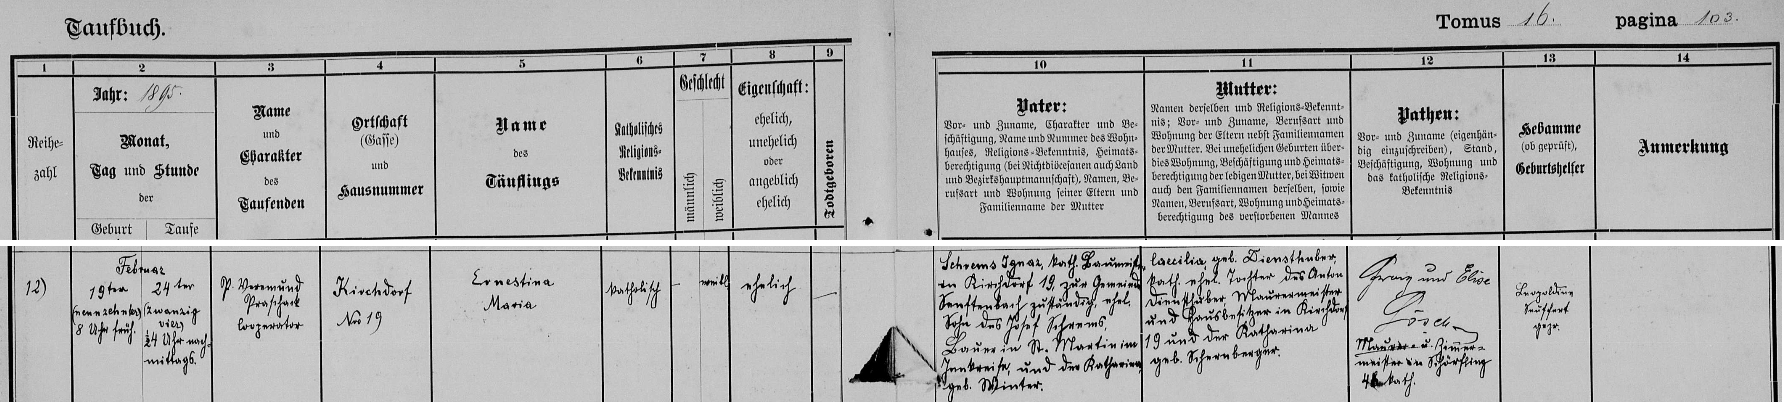 Taufbuch.
Tomus 16. pagina 103.
1
2
3
4
5
6
7
8
9
10
11
12
13
14
Reihe-
zahl
Jahr: 1895.
Monat,
Tag und Stunde
der
Geburt
Taufe
Name
und
Charakter
des
Taufenden
Ortschaft
(Gasse)
und
Hausnummer
Name
des
Täuflings
Katholisches
Religions-
Bekenntnis
Geschlecht
männlich
weiblich
Eigenschaft:
ehelich,
unehelich
oder
angeblich
ehelich
Todtgeboren
Vater:
Vor- und Zuname, Charakter und Be-
schäftigung, Name und Nummer des Wohn-
hauses, Religions-Bekenntnis, Heimats-
berechtigung (bei Nichtdiöcesanen auch Land
und Bezirkshauptmannschaft), Namen, Be-
rufsart und Wohnung seiner Eltern und
Familienname der Mutter
Mutter:
Namen derselben und Religions-Bekennt-
nis; Vor- und Zuname, Berufsart und
Wohnung der Eltern nebst Familiennamen
der Mutter. Bei unehelichen Geburten über-
dies Wohnung, Beschäftigung und Heimats-
berechtigung der ledigen Mutter, bei Witwen
auch den Familiennamen derselben, sowie
Namen, Berufsart, Wohnung und Heimats-
berechtigung des verstorbenen Mannes
Pathen:
Vor- und Zuname (eigenhän-
dig einzuschreiben), Stand,
Beschäftigung, Wohnung und
das katholische Religions-
Bekenntnis
Hebamme
(ob geprüft),
Geburtshelfer
Anmerkung
12)
Februar
19ter
(neunzehnter)
8 Uhr früh.
24ter
(zwanzig
vier)
24 Uhr nach-
mittags.
P. Veremund
Praschack
Cooperator
Kirchdorf
No 19
Ernestina
Maria
katholisch
weibl
ehelich
Schrems Ignaz, kath. Baumeister
in Kirchdorf 19 zur Gemeinde
Senftenbach zuständig, ehel.
Sohn des Josef Schrems,
Bauer in St. Martin im
Innkreise, und der Katharina
geb. Winter.
Caecilia geb. Diensthuber,
kath. ehel. Tochter des Anton
Diensthuber, Maurermeister
und Hausbesitzer in Kirchdorf
19 und der Katharina
geb. Schernberger.
Georg und Elise
Lösch
Maurer u. Zimer-
meister in Schörfling
kath.
Leopoldine
Seuffert
gepr.